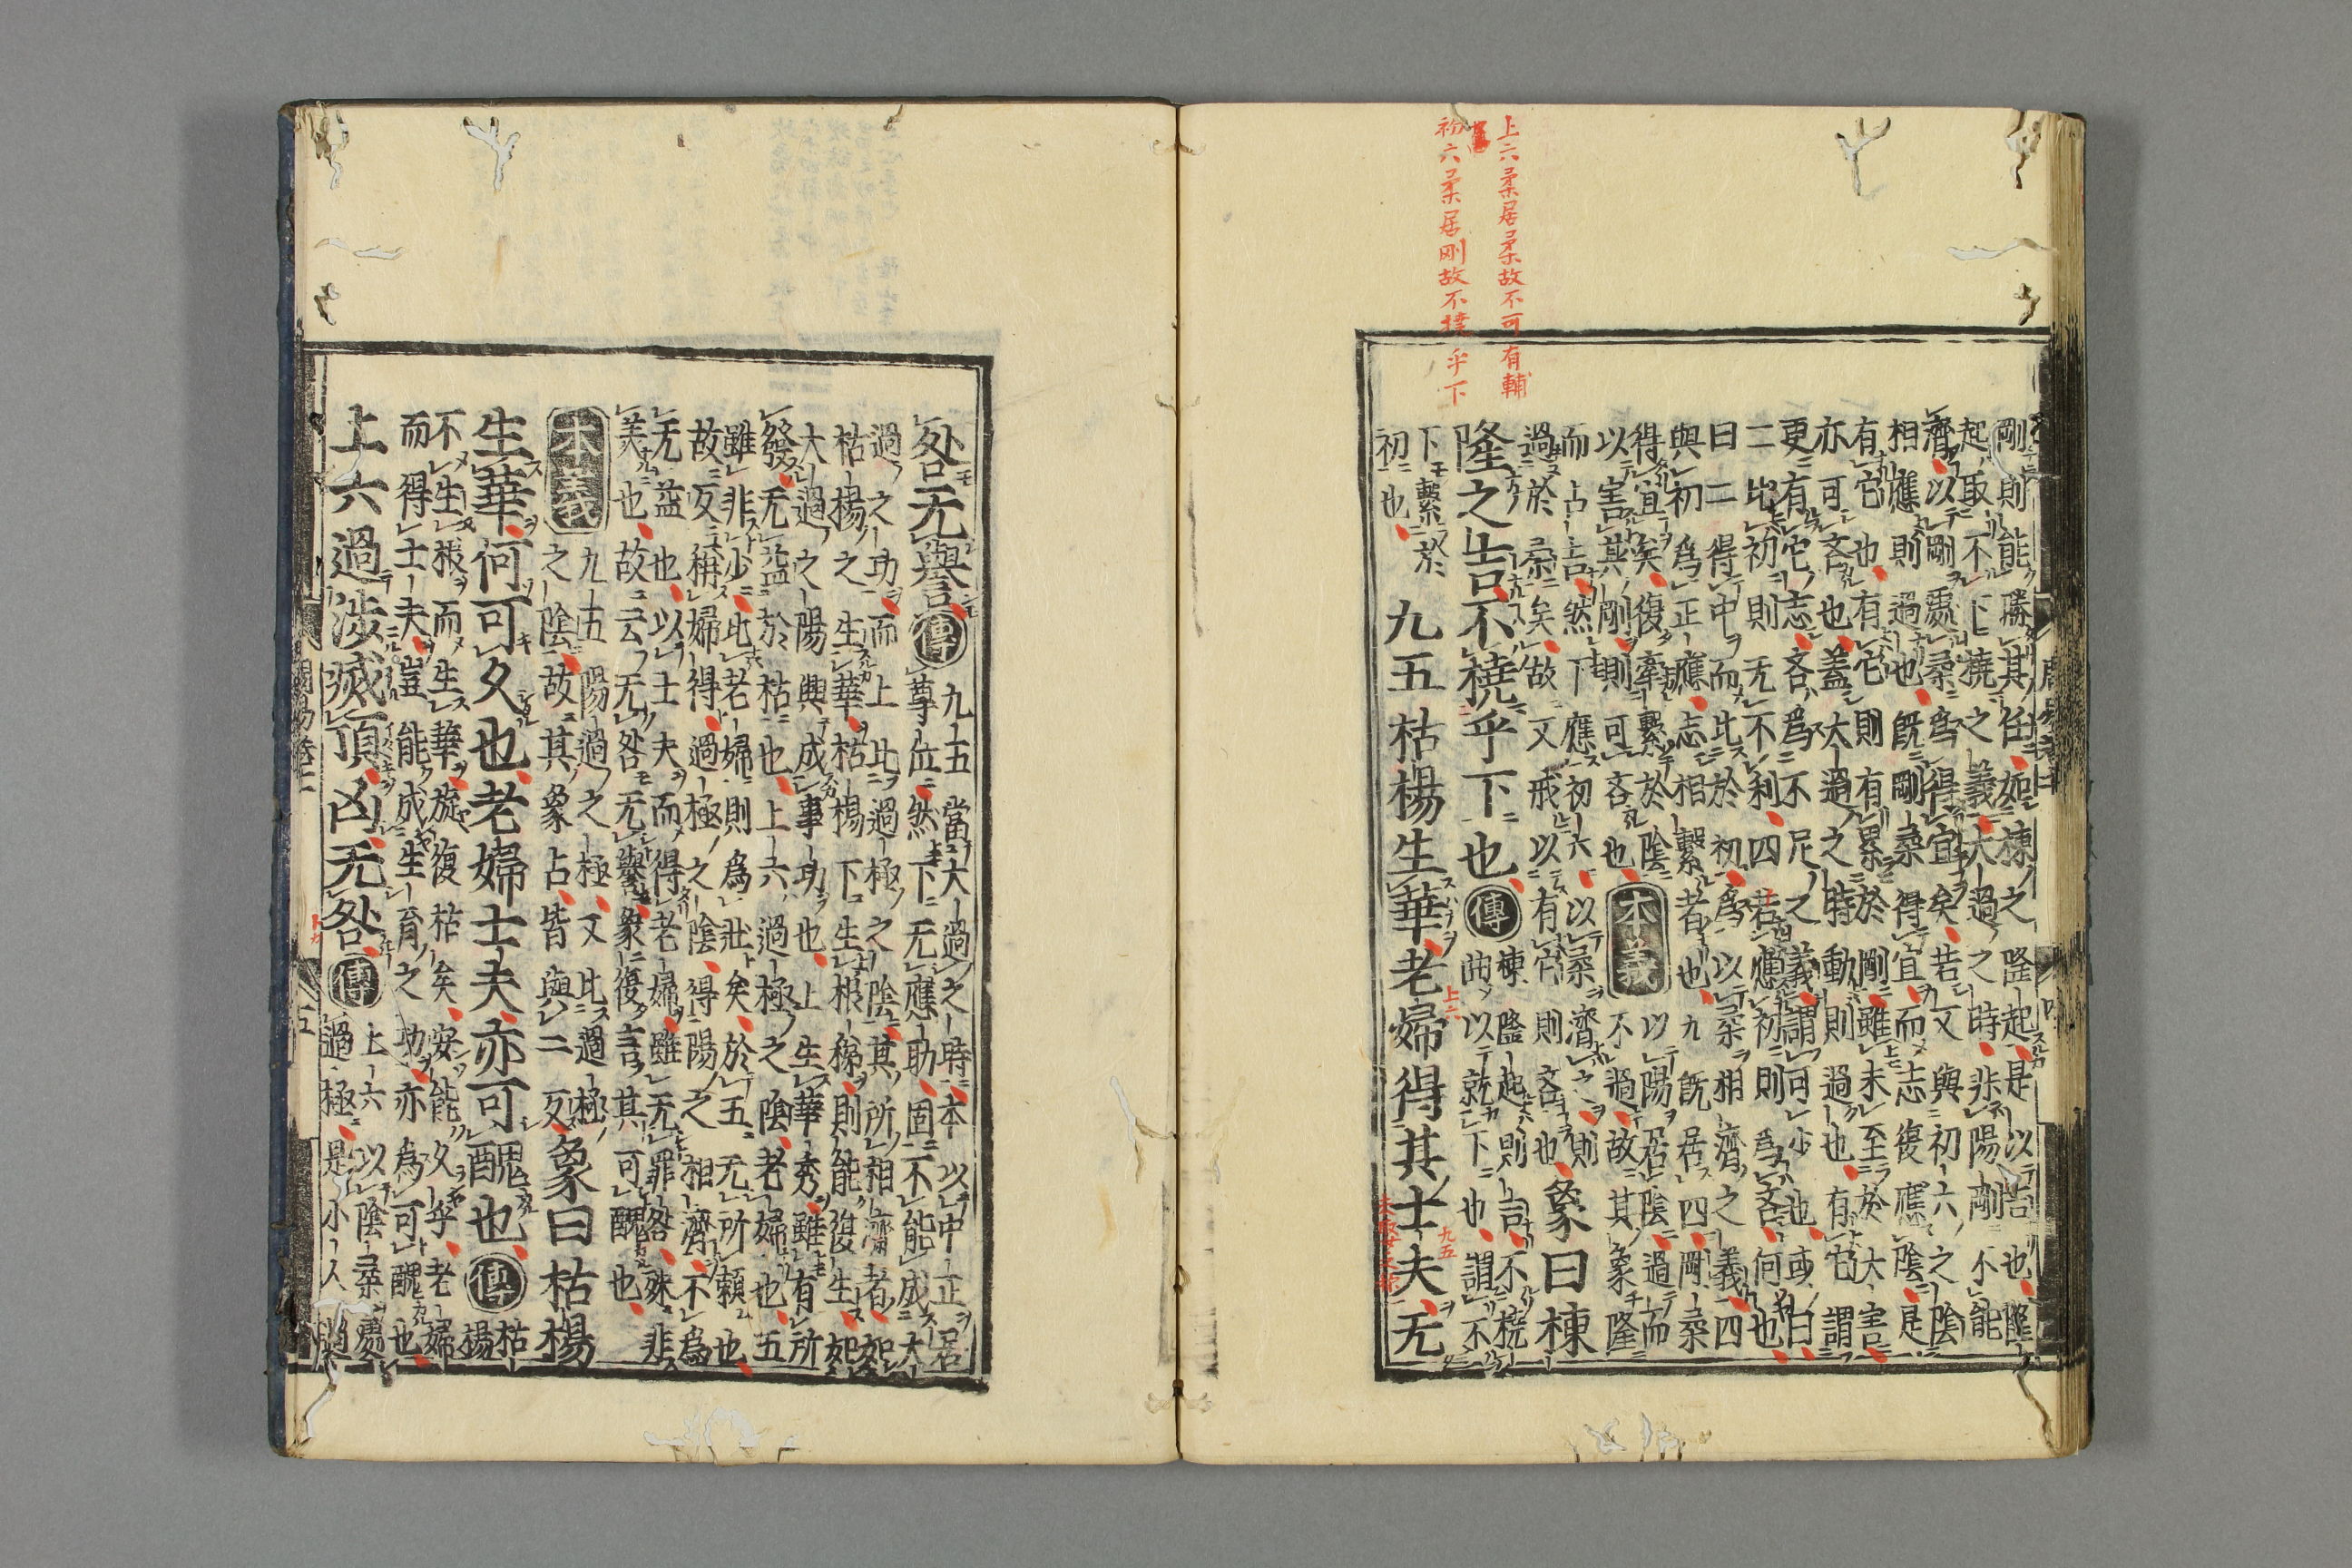 上六柔居柔故不可有輔
初六柔居剛故不橈乎下
剛則能勝其任如棟之隆起是以吉也隆
起取不下橈之義大過之時非陽剛不能
濟以剛處柔爲得宜矣若又與初六之陰
相應則過也既剛柔得宜而志復應陰是
有它也有它則有累於剛雖未至於大害
亦可吝也蓋大過之時動則過也有它謂
更有它志吝爲不足之義謂可少也或曰
二比初則无不利四若應初則爲吝何也
曰二得中而比於初爲以柔相濟之義四
與初爲正應志相繫者也九既居四剛柔
得宜矣復牽繫於陰
以害其剛則可吝也
本義
以陽居陰過而
不過故其象隆
而占吉然下應初六以柔濟之則
過於柔矣故又戒以有它則吝也
象曰棟
隆之吉不橈乎下也
傳
棟隆起則吉不橈
曲以就下也謂不
下繫於
初也
九五枯楊生華老婦得其士夫无
咎无譽
傳
九五當大過之時本以中正居
尊位然下无應助固不能成大
過之功而上比過極之陰其所相濟者如
枯楊之生華枯楊下生根稊則能復生如
大過之陽興成事功也上生華秀雖有所
發无益於枯也上六過極之陰老婦也五
雖非少比老婦則爲壯矣於五无所賴也
故反稱婦得過極之陰得陽之相濟不爲
无益也以士夫而得老婦雖无罪咎殊非
美也故云无咎无譽象復言其可醜也
本義
九五陽過之極又比過極
之陰故其象占皆與二反
象曰枯楊
生華何可久也老婦士夫亦可醜也
傳
枯
楊
不生根而生華旋復枯矣安能久乎老婦
而得士夫豈能成生育之功亦為可醜也
上六過涉滅頂凶无咎
傳
上六以陰柔處
過極是小人